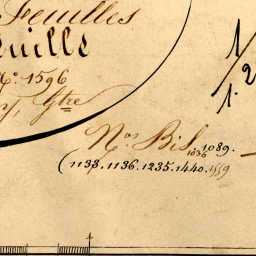 Feuilles
euille
No. 1596
Gtre
1/2
1.
Nos. Bis. 1036 1089.
(1138. 1136. 1235. 1440. 1559